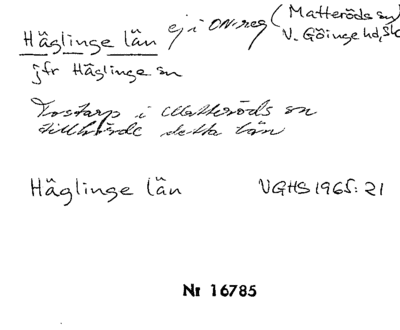 Häglinge län ej i ON-reg (Matteröds sn
V. Göinge hd, Sk
jfr Häglinge sn
Tostarp i Matteröds sn
tillhörde detta län
Häglinge län VGHS 1965: 21
Nr 16785